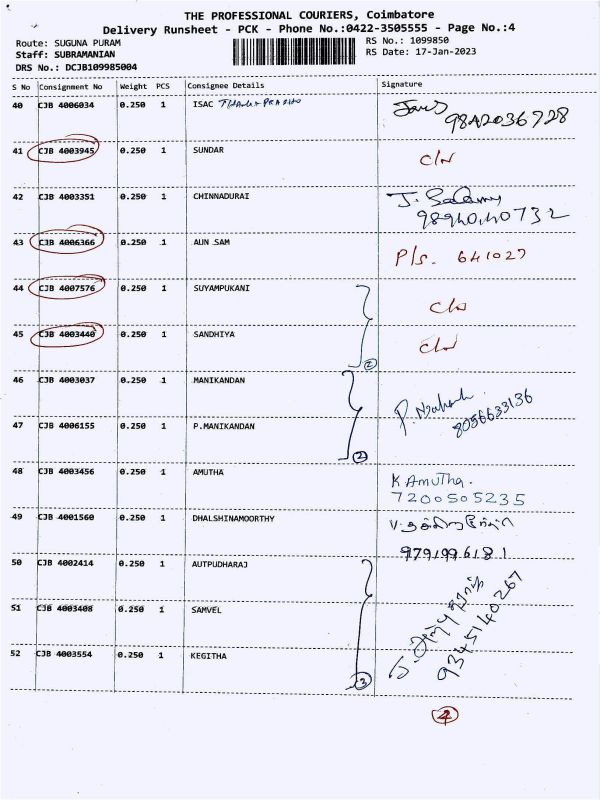 THE PROFESSIONAL COURIERS, Coimbatore
Delivery Runsheet - PCK - Phone No.:0422-3505555 - Page No.:4
Route: SUGUNA PURAM
RS No.: 1099850
Staff: SUBRAMANIAN
RS Date: 17-Jan-2023
DRS No.: DCJB109985004
S No Consignment No Weight PCS Consignee Details Signature
40 CJB 4006034 0.250 1 ISAC
9842036728
41 CJB 4003945 0.250 1 SUNDAR
42 CJB 4003351 0.250 1 CHINNADURAI
43 CJB 4006366 0.250 1 AUN SAM P/s. 641027
44 CJB 4007576 0.250 1 SUYAMPUKANI
45 CJB 4003440 0.250 1 SANDHIYA
2
46 CJB 4003037 0.250 1 MANIKANDAN
8056633136
47 CJB 4006155 0.250 1 P.MANIKANDAN
2
48 CJB 4003456 0.250 1 AMUTHA K Amutha.
7200505235
49 CJB 4001560 0.250 1 DHALSHINAMOORTHY
9791996181
50 CJB 4002414 0.250 1 AUTPUDHARAJ
51 CJB 4003408 0.250 1 SAMVEL
9345140267
52 CJB 4003554 0.250 1 KEGITHA
3